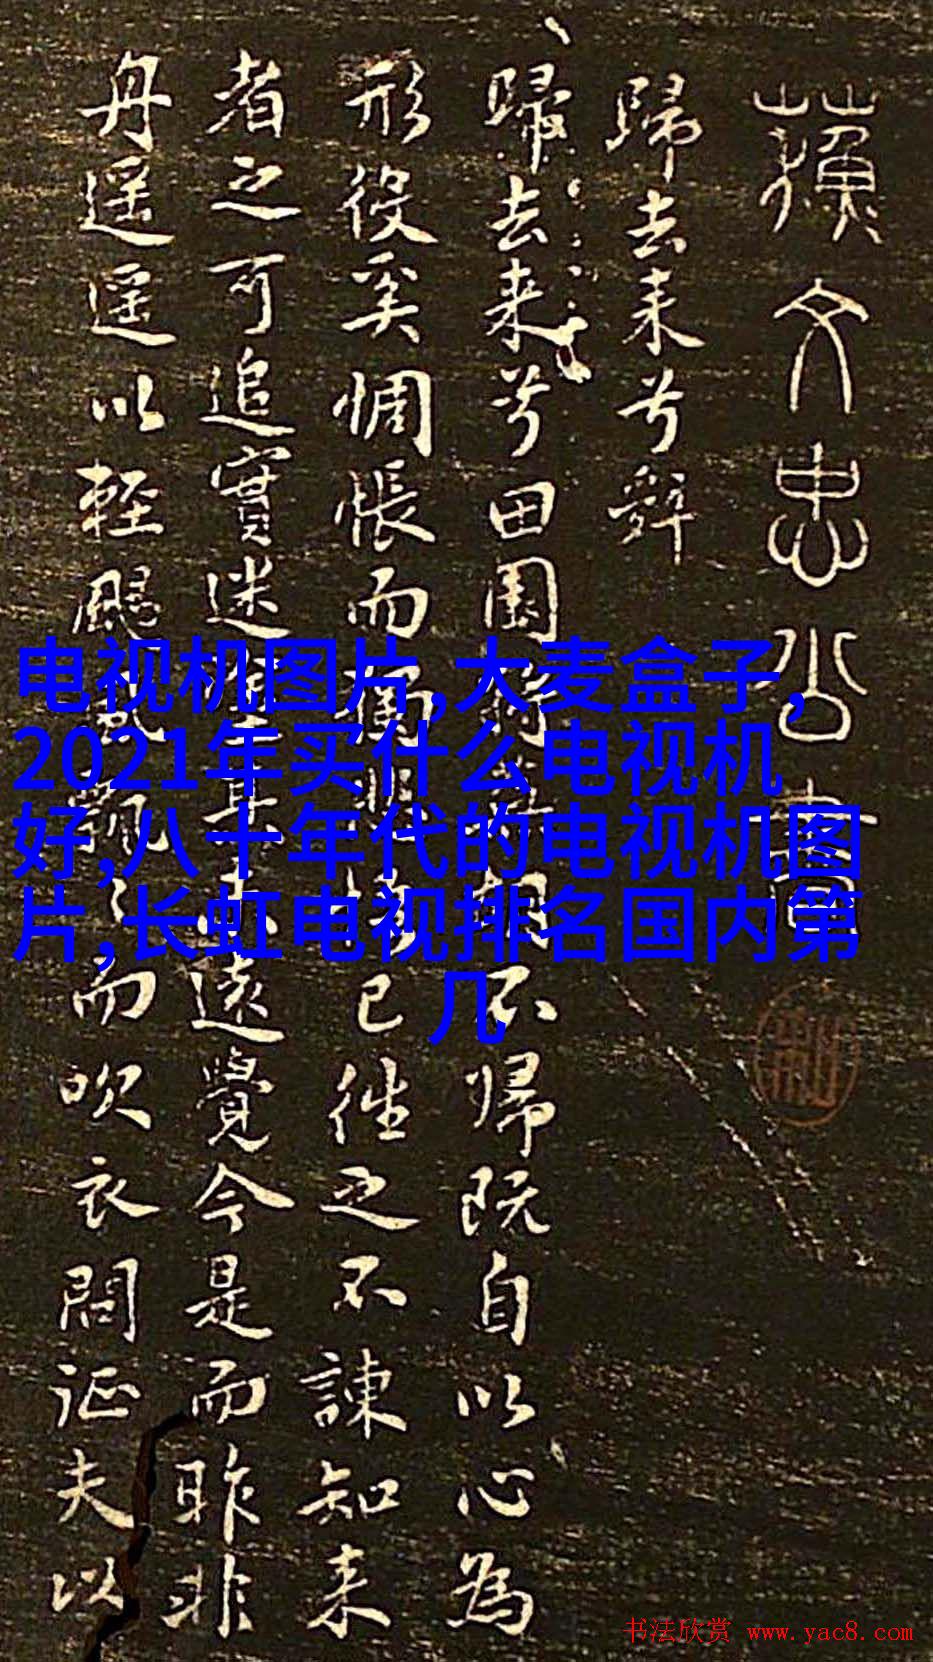 蘓文忠公書
歸去来兮辭
歸去来兮田園將蕪胡不歸既自以心為
形役奚惆悵而獨悲悟已往之不諫知来
者之可追實迷途其未遠覺今是而昨非
舟遥遥以輕颺風飄〻而吹衣問征夫以
电视机图片,大麦盒子,
2021年买什么电视机
好,八十年代的电视机图
片,长虹电视排名国内第
几
书法欣赏 www.yac8.com